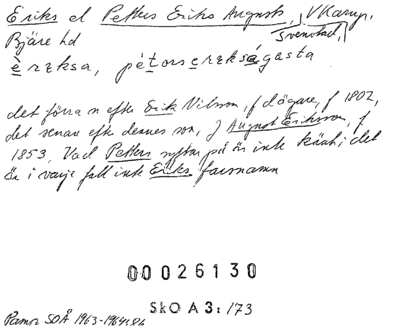 Eriks el Petters Eriks Augusts, V Karup,
Svenstad,
Bjäre hd
èreksa, pétorserekságasta
det förra n efter Erik Nilsson, f d ägare, f 1802,
det senare efter dennes son, J August Eriksson, f
1853. Vad Petters syftar på är inte känt; det
är i varje fall inte Eriks farsnamn
00026130
SkO A3: 173
Pamp SOÅ 1963-1964 s 86